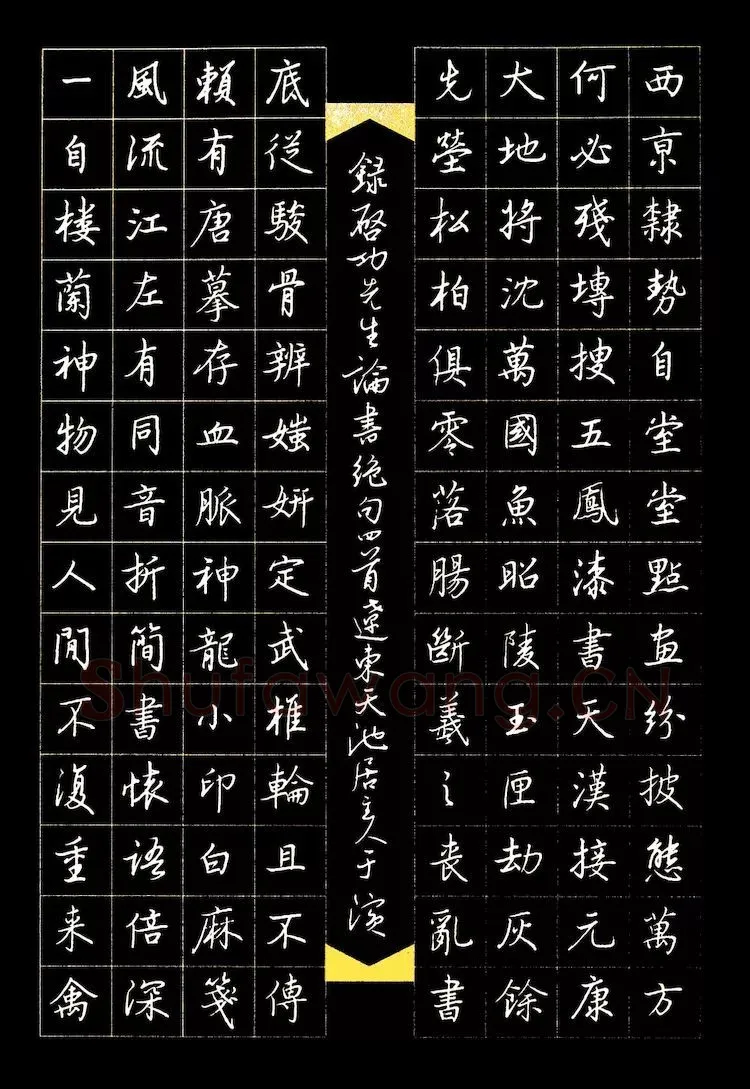 西亰隸勢自堂堂點畫紛披態萬方
何必殘塼搜五鳳漆書天漢接元康
大地將沈萬國魚昭陵玉匣劫灰餘
先塋松柏俱零落腸斷羲之喪亂書
錄啓功先生論書絕句四首遼東天池居主人于
底從駿骨辨媸妍定武椎輪且不傳
賴有唐摹存血脈神龍小印白麻箋
風流江左有同音折簡書懷語倍深
一自楼蘭神物見人間不復重来禽
Shufawang.CN